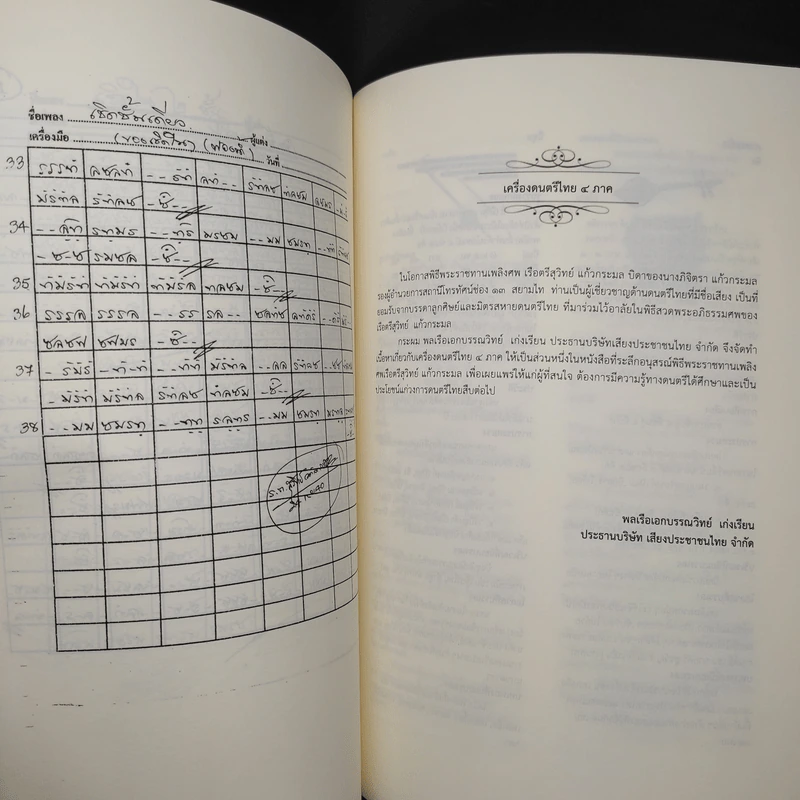 ชื่อเพลง เชิดชั้นเดียว ผู้แต่ง
เครื่องมือ วันที่
33 รรรทํ ลซลทํ --รํทํ ลทํ-- รํทํลซ ทํลซม
มํรํทํล รํทํลซ -ซิ--
34 --ลฺทฺ รทฺมร --ทฺรฺ มรซม --มม ซมรทฺ
-ซ-ซ รมซล -ซิ--
35 ทํมํรํทํ ทํมํรํทํ ทํมํรํล ทํลซม -ซิ--
36 รรรล รรรล --รร รล-- ซลทซ ลทํดํรํ
ซลซฟ ซฟมร -ซิ--
37 -รํมํรํ -ทํ-ทํ --ทํทํ มํรํทํล --ลล รํทํลซ
-มํรํทํ มํรํทํล รํทํลซ ทํลซม -ซิ--
38 --มม ซมรทฺ --ทฺทฺ รลฺทฺร --มม ซมรทฺ
เครื่องดนตรีไทย ๔ ภาค
ในโอกาสพิธีพระราชทานเพลิงศพ เรือตรีสุวิทย์ แก้วกระมล บิดาของนางภิจิตรา แก้วกระมล
รองผู้อำนวยการสถานีโทรทัศน์ช่อง ๑๓ สยามไท ท่านเป็นผู้เชี่ยวชาญด้านดนตรีไทยที่มีชื่อเสียง เป็นที่
ยอมรับจากบรรดาลูกศิษย์และมิตรสหายดนตรีไทย ที่มาร่วมไว้อาลัยในพิธีสวดพระอภิธรรมศพของ
เรือตรีสุวิทย์ แก้วกระมล
กระผม พลเรือเอกบรรณวิทย์ เก่งเรียน ประธานบริษัทเสียงประชาชนไทย จำกัด จึงจัดทำ
เนื้อหาเกี่ยวกับเครื่องดนตรีไทย ๔ ภาค ให้เป็นส่วนหนึ่งในหนังสือที่ระลึกอนุสรณ์พิธีพระราชทานเพลิง
ศพเรือตรีสุวิทย์ แก้วกระมล เพื่อเผยแพร่ให้แก่ผู้ที่สนใจ ต้องการมีความรู้ทางดนตรีได้ศึกษาและเป็น
ประโยชน์แก่วงการดนตรีไทยสืบต่อไป
พลเรือเอกบรรณวิทย์ เก่งเรียน
ประธานบริษัท เสียงประชาชนไทย จำกัด